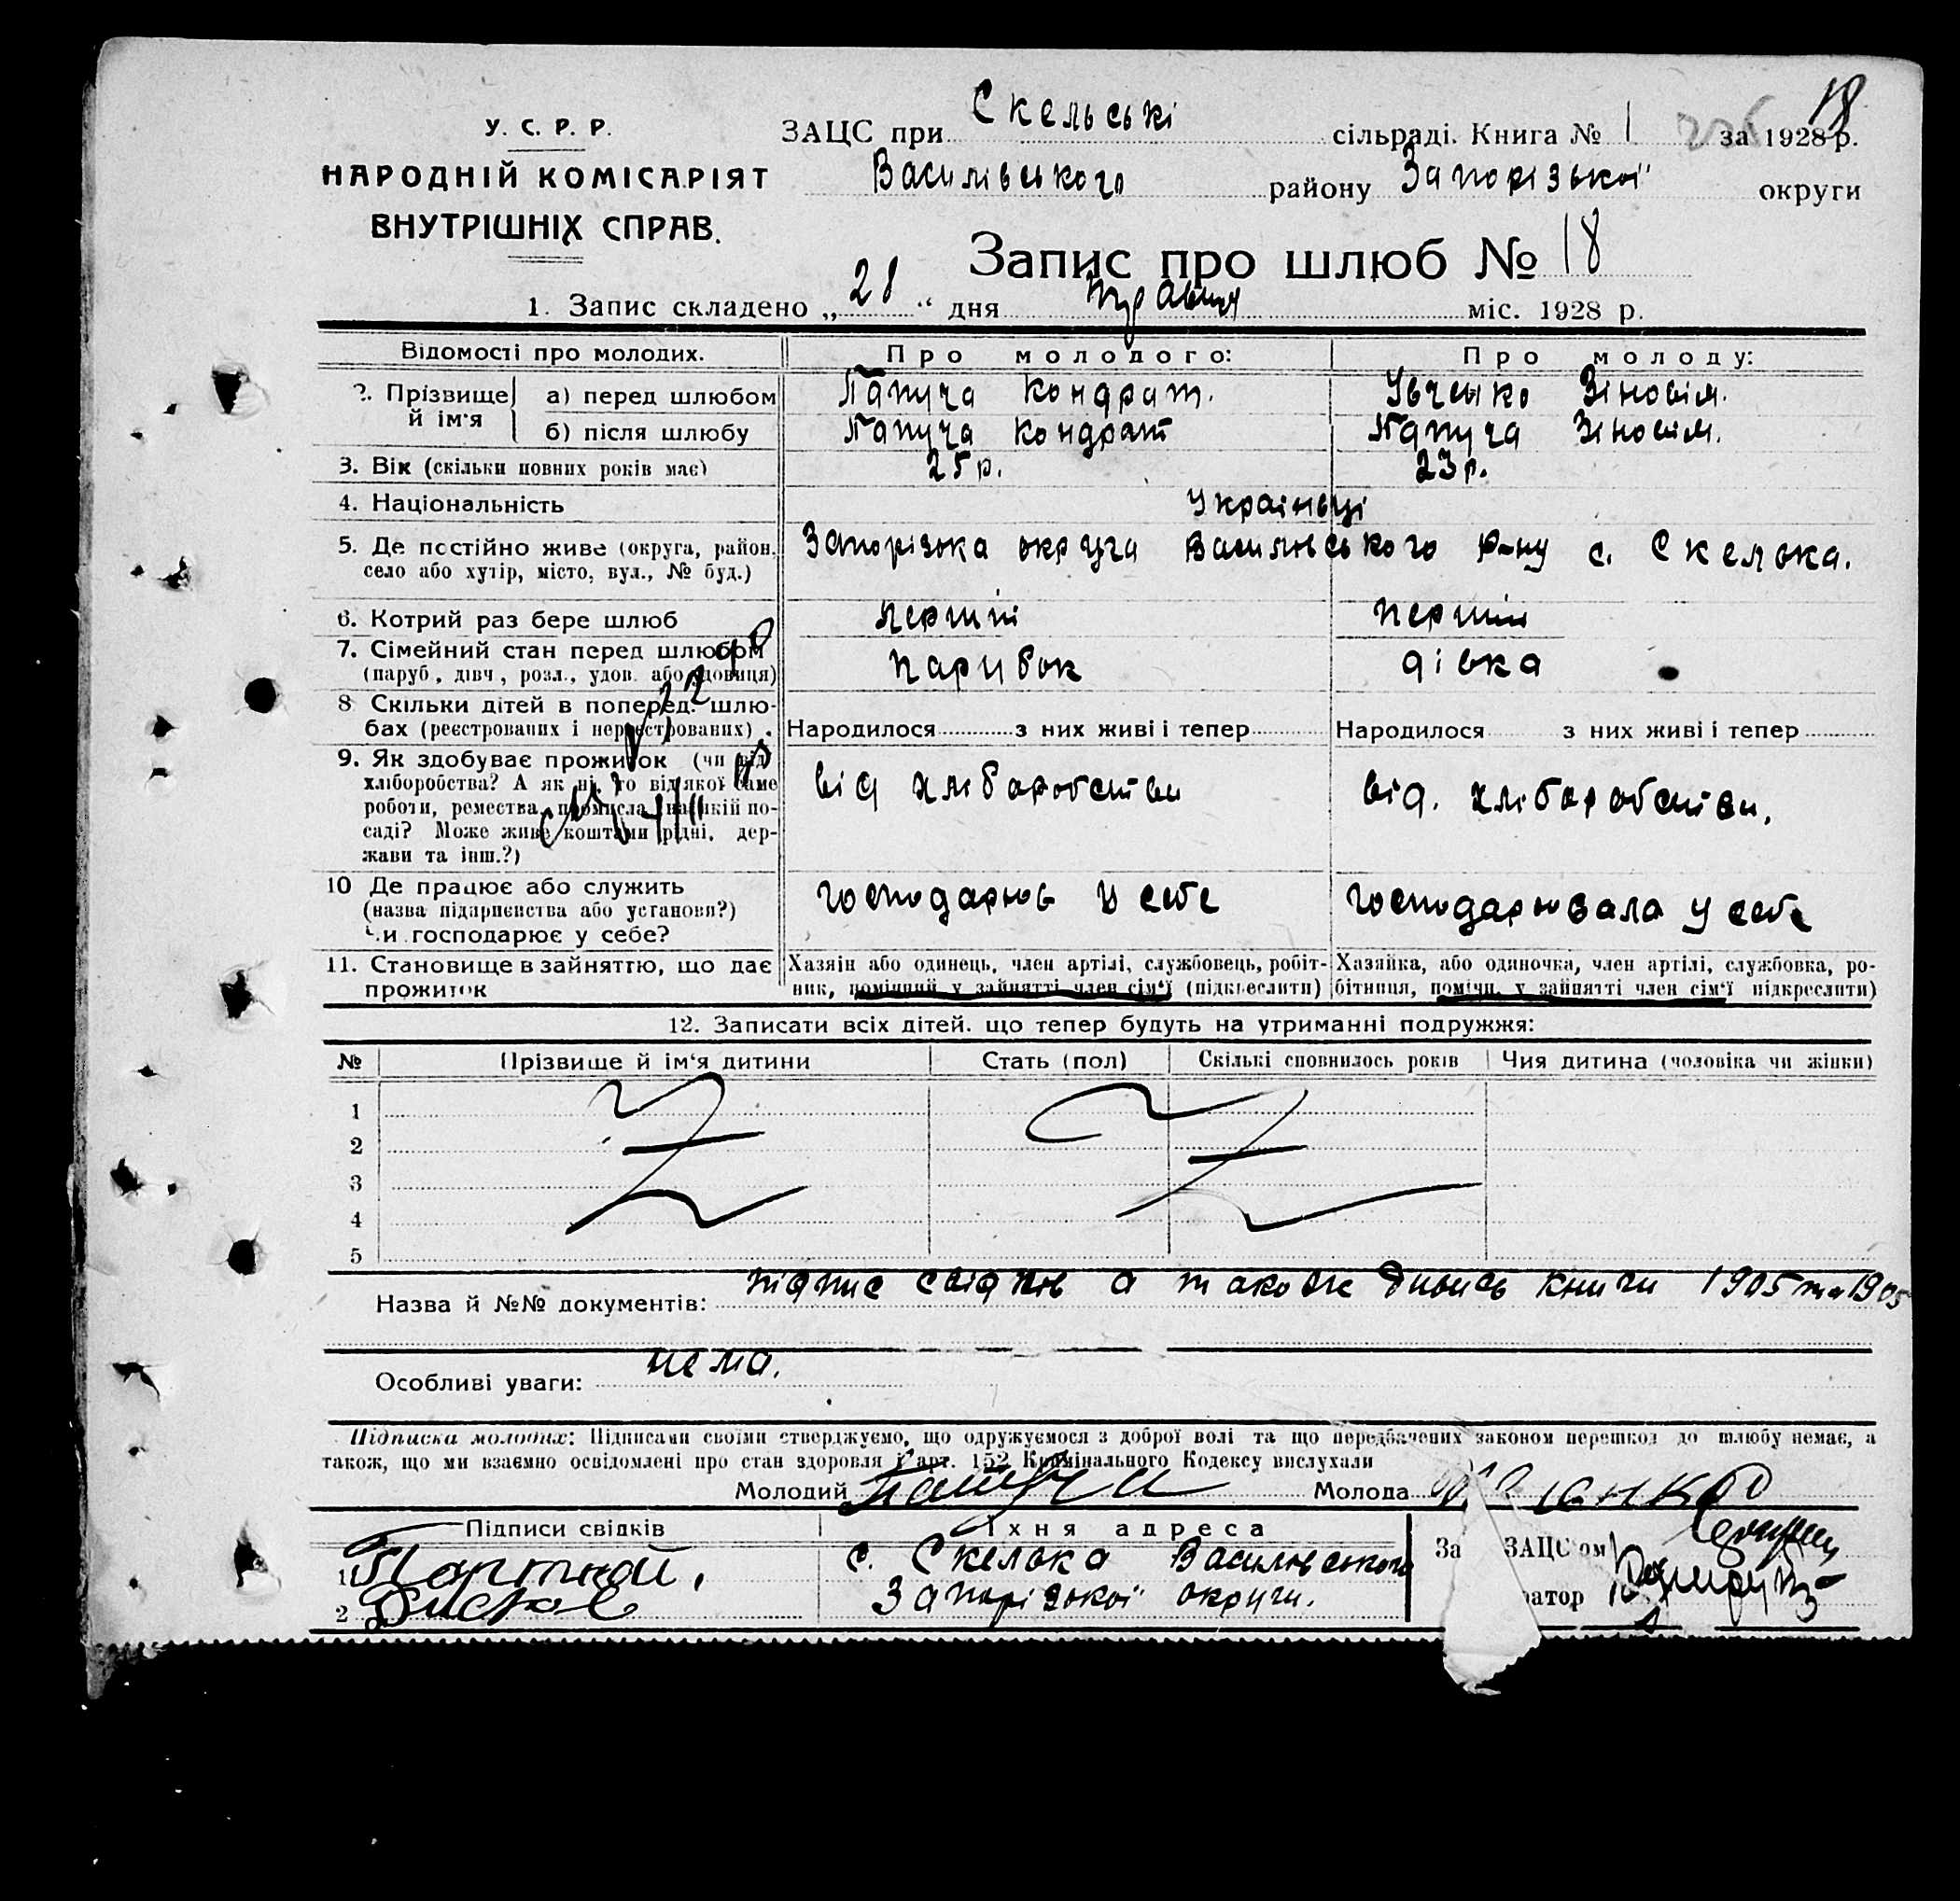 18
У. С. Р. Р.
ЗАЦС при Скельські сільраді. Книга № 1 за 1928 р.
НАРОДНІЙ КОМІСАРІЯТ
Василівського району Запорізької округи
ВНУТРІШНІХ СПРАВ.
Запис про шлюб № 18
1. Запис складено „ 28 “ дня травня міс. 1928 р.
Відомості про молодих. Про молодого: Про молоду:
2. Прізвище й ім'я а) перед шлюбом Папуча Кондрат. Зіновія.
б) після шлюбу Папуча Кондрат Папуча Зіновія.
3. Вік (скільки повних років має) 25 р. 23 р.
4. Національність Україньці
5. Де постійно живе (округа, район, село або хутір, місто, вул., № буд.) Запорізька округа Василівського р-ну с. Скелька.
6. Котрий раз бере шлюб перший перший
7. Сімейний стан перед шлюбом (паруб., дівч., розл., удов. або удовиця) парубок дівка
8 Скільки дітей в поперед. шлюбах (реєстрованих і нереєстрованих). Народилося з них живі і тепер Народилося з них живі і тепер
9. Як здобуває прожиток (чи від хліборобства? А як ні, то від якої саме роботи, ремества, промисла, на якій посаді? Може живе коштами рідні, держави та інш.?) від хліборобства від. хліборобства.
10 Де працює або служить (назва підприємства або установи?) Чи господарює у себе? господарюв у себе господарювала у себе
11. Становище в зайняттю, що дає прожиток Хазяін або одинець, член артілі, службовець, робітник, помічний у зайнятті член сім'ї (підкреслити) Хазяйка, або одиночка, член артілі, службовка, робітниця, помічн. у зайнятті член сім'ї підкреслити)
12. Записати всіх дітей. що тепер будуть на утриманні подружжя:
№ Прізвище й ім'я дитини Стать (пол) Скількі сповнилось років Чия дитина (чоловіка чи жінки)
1
2
3
4
5
Назва й №№ документів: підпис свідків а також книги 1905 та 1905
Особливі уваги: нема.
Підписка молодих: Підписами своїми стверджуємо, що одружуємося з доброї волі та що передбачених законом перешкод до шлюбу немає, а
також, що ми взаємно освідомлені про стан здоровля і арт. 152 Кримінального Кодексу вислухали
Молодий Папуча Молода
Підписи свідків Їхня адреса
1 с. Скелька Василівського За ЗАЦС'ом
2 Запорізької округи. ратор